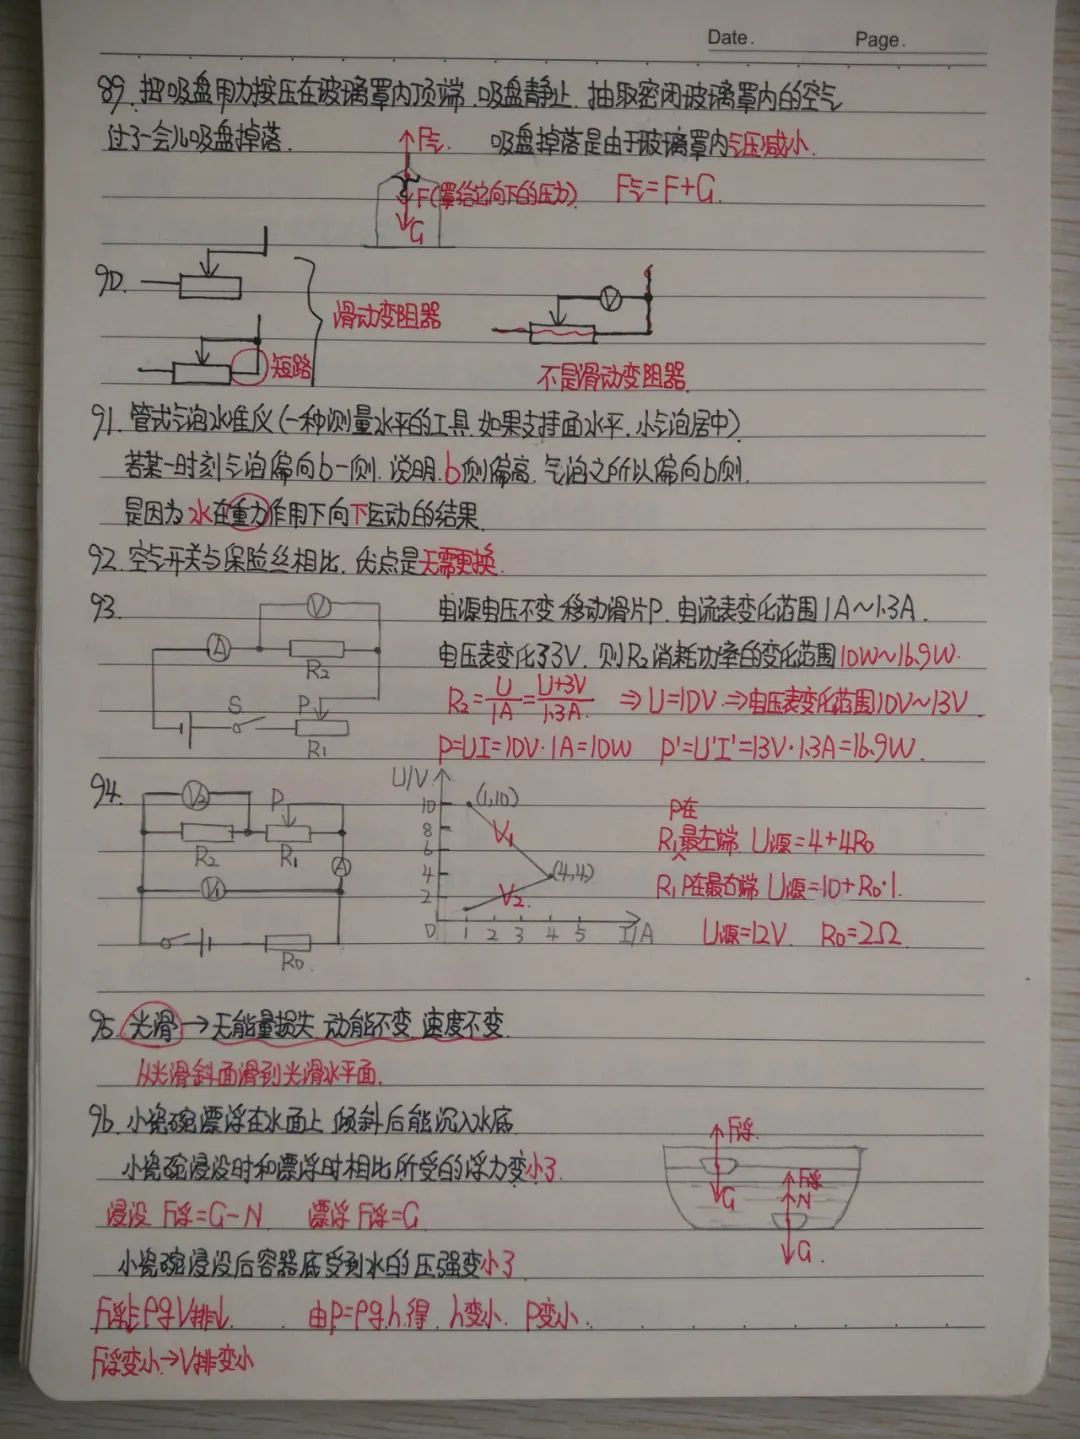 Date. Page.
89. 把吸盘用力按压在玻璃罩内顶端.吸盘静止.抽取密闭玻璃罩内的空气
过了一会儿吸盘掉落. F气. 吸盘掉落是由于玻璃罩内气压减小.
F(罩给它向下的压力) F气=F+G.
G
90.
滑动变阻器
V
短路
不是滑动变阻器.
91. 管式气泡水准仪(一种测量水平的工具.如果支持面水平.小气泡居中)
若某一时刻气泡偏向b一侧.说明.b侧偏高.气泡之所以偏向b侧.
是因为水在重力作用下向下运动的结果.
92. 空气开关与保险丝相比.优点是无需更换.
93. V 电源电压不变.移动滑片P.电流表变化范围1A~1.3A.
A R2 电压表变化了3V.则R2消耗功率的变化范围10W~16.9W.
S P R2=U/1A=U+3V/1.3A ⇒U=10V⇒电压表变化范围10V~13V
R1 P=UI=10V·1A=10W P'=U'I'=13V·1.3A=16.9W.
94. V2 P U/V 10 (1,10) P在
R2 R1 8 V1 R1最左端.U源=4+4R0
A 6
V1 4 (4,4) R1P在最右端 U源=10+R0·1.
2 V2.
R0. 0 1 2 3 4 5 I/A U源=12V. R0=2Ω.
95. 光滑→无能量损失.动能不变.速度不变.
从光滑斜面滑到光滑水平面.
96. 小瓷碗漂浮在水面上.倾斜后能沉入水底. F浮.
小瓷碗浸没时和漂浮时相比所受的浮力变小了. G F浮 N
浸没 F浮=G-N 漂浮 F浮=G. G.
小瓷碗浸没后容器底受到水的压强变小了.
F浮↓=ρgV排↓. 由P=ρgh.得.h变小.P变小.
F浮变小→V排变小